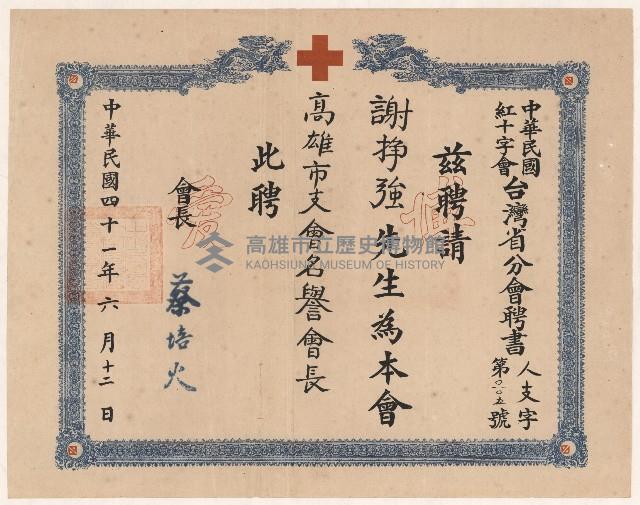 中華民國
紅十字會
台灣省分會聘書
人支字
第〇〇五號
茲聘請
謝掙強先生為本會
高雄市支會名譽會長
此聘
會長
蔡培火
中華民國四十一年六月十二日
博愛
高雄市立歷史博物館
KAOHSIUNG MUSEUM OF HISTORY